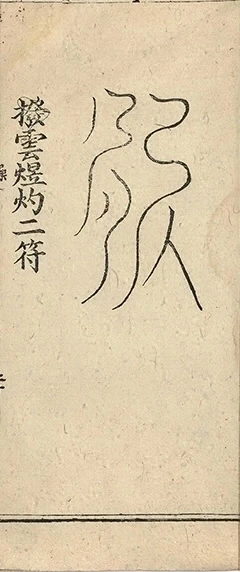 撥雲煜灼二符